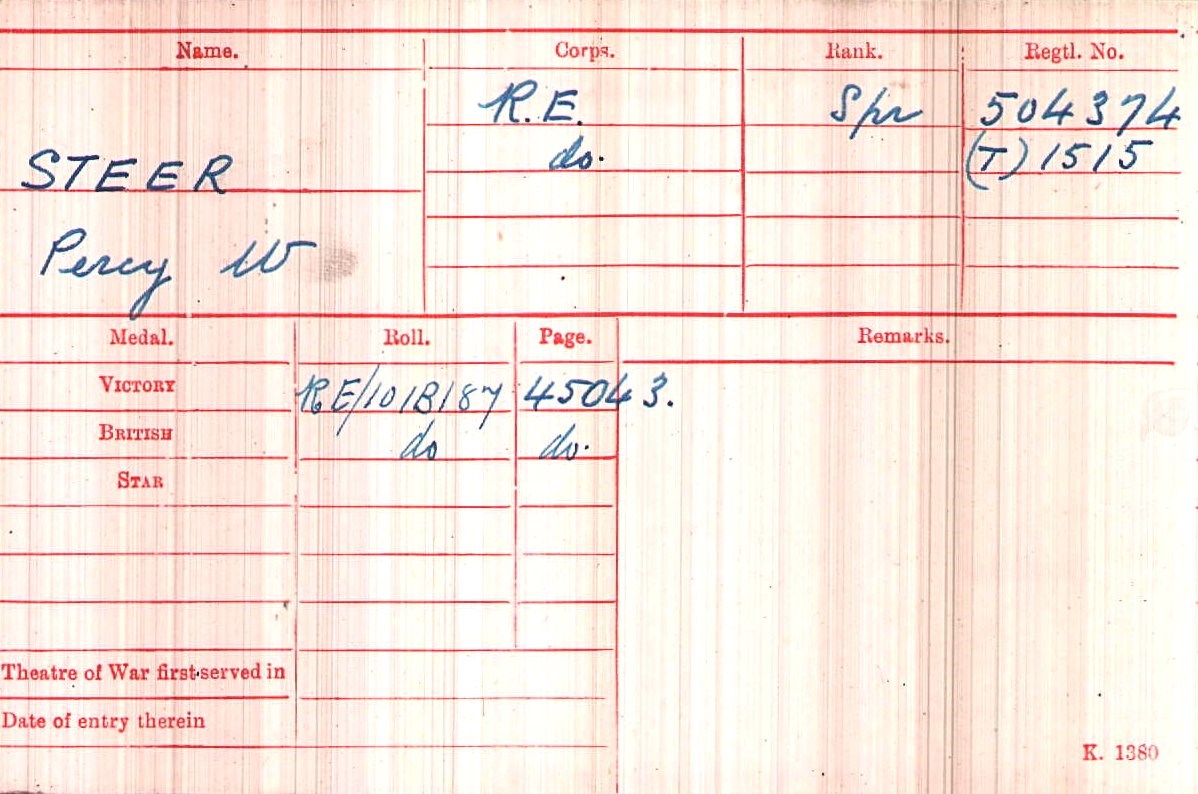 Name. Corps. Rank. Regtl. No.
R.E. Spr 504374
STEER do. (T) 1515
Percy W
Medal. Roll. Page. Remarks.
VICTORY RE/101B187 45043.
BRITISH do do.
STAR
Theatre of War first served in
Date of entry therein
K. 1380